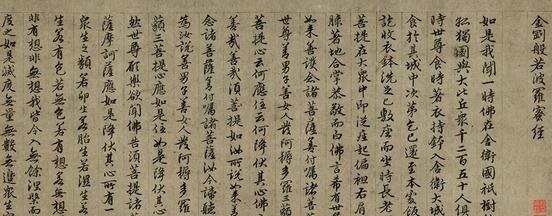 金剛般若波羅蜜經
如是我聞一時佛在舍衛國祇樹
孤獨園與大比丘衆千二百五十人俱
時世尊食時著衣持鉢入舍衛大城
食於其城中次第乞已還至本處飯
訖收衣鉢洗足已敷座而坐時長老
菩提在大衆中即從座起偏袒右肩
膝著地合掌恭敬而白佛言希有世
如來善護念諸菩薩善付囑諸菩
世尊善男子善女人發阿耨多羅三
菩提心云何應住云何降伏其心佛
善哉善哉須菩提如汝所說如來善
念諸菩薩善付囑諸菩薩汝今諦聽
為汝說善男子善女人發阿耨多羅
藐三菩提心應如是住如是降伏其心
然世尊願樂欲聞佛告須菩提諸菩
薩摩訶薩應如是降伏其心所有
衆生之類若卵生若胎生若濕生若
生若有色若無色若有想若無想
非有想非無想我皆令入無餘涅槃而
度之如是滅度無量無數無邊衆生實